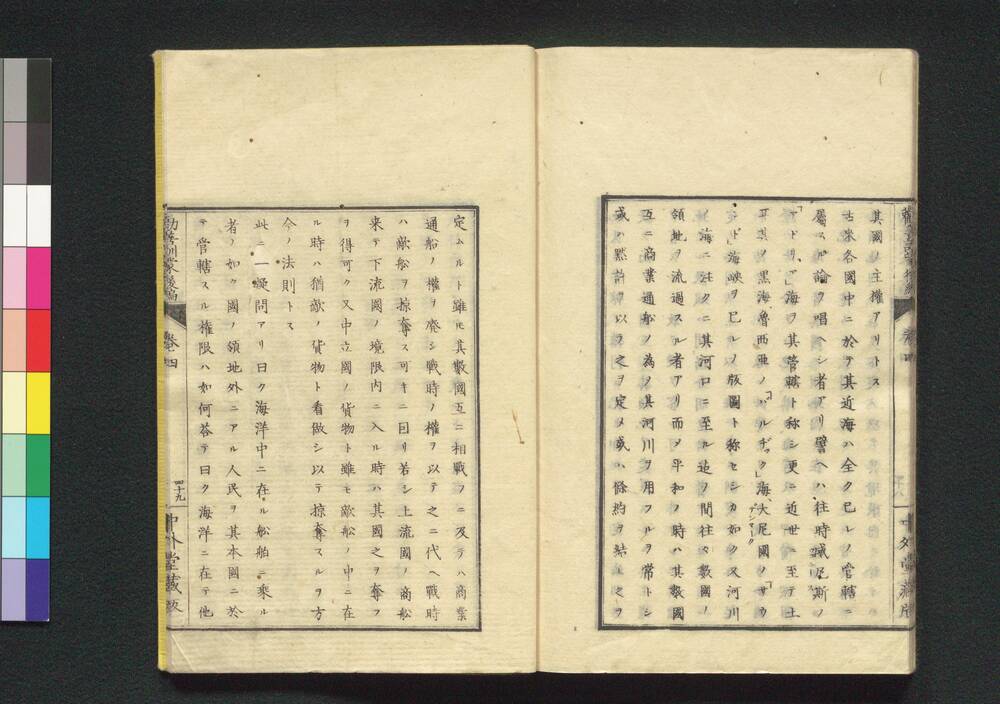 其國ニ主權アリトス
古來各國中ニ於テ其近海ハ全ク已レノ管轄ニ
屬スト論ヲ唱ヘシ者アリ譬ヘハ往時威尼斯ノ
「アドリア」海ヲ其管轄ト稱シ更ニ近世ニ至テ土
耳其ノ黑海魯西亞ノ「バルヂック」海、大尼國ノ「サウ
ンド」海峽ヲ已レノ版圖ト稱セシカ如ク又河川
ノ海ニ注クニ其河口ニ至ル迄ヲ間往々數國ノ
領地ヲ流過スル者アリ而〆平和ノ時ハ其數國
互ニ商業通船ノ為メ其河川ヲ用フルヲ常トシ
或ハ黙許ヲ以テ之ヲ定メ或ハ條約ヲ結テ之ヲ
中外堂藏版
定ムルト雖モ其數國互ニ相戰フニ及テハ商業
通船ノ權ヲ廢シ戰時ノ權ヲ以テ之ニ代ヘ戰時
ハ敵船ヲ掠奪ス可キニ因リ若シ上流國ノ商船
来テ下流國ノ境限内ニ入ル時ハ其國之ヲ奪フ
ヲ得可ク又中立國ノ貨物ト雖モ敵船ノ中ニ在
ル時ハ猶敵ノ貨物ト看做シ以テ掠奪スルヲ方
今ノ法則トス
此ニ一疑問アリ曰ク海洋中ニ在ル船舶ニ乘ル
者ノ如ク國ノ領地外ニアル人民ヲ其本國ニ於
テ管轄スル權限ハ如何荅テ曰ク海洋ニ在テ他
勸善訓蒙後編 卷四 四十九 中外堂藏版